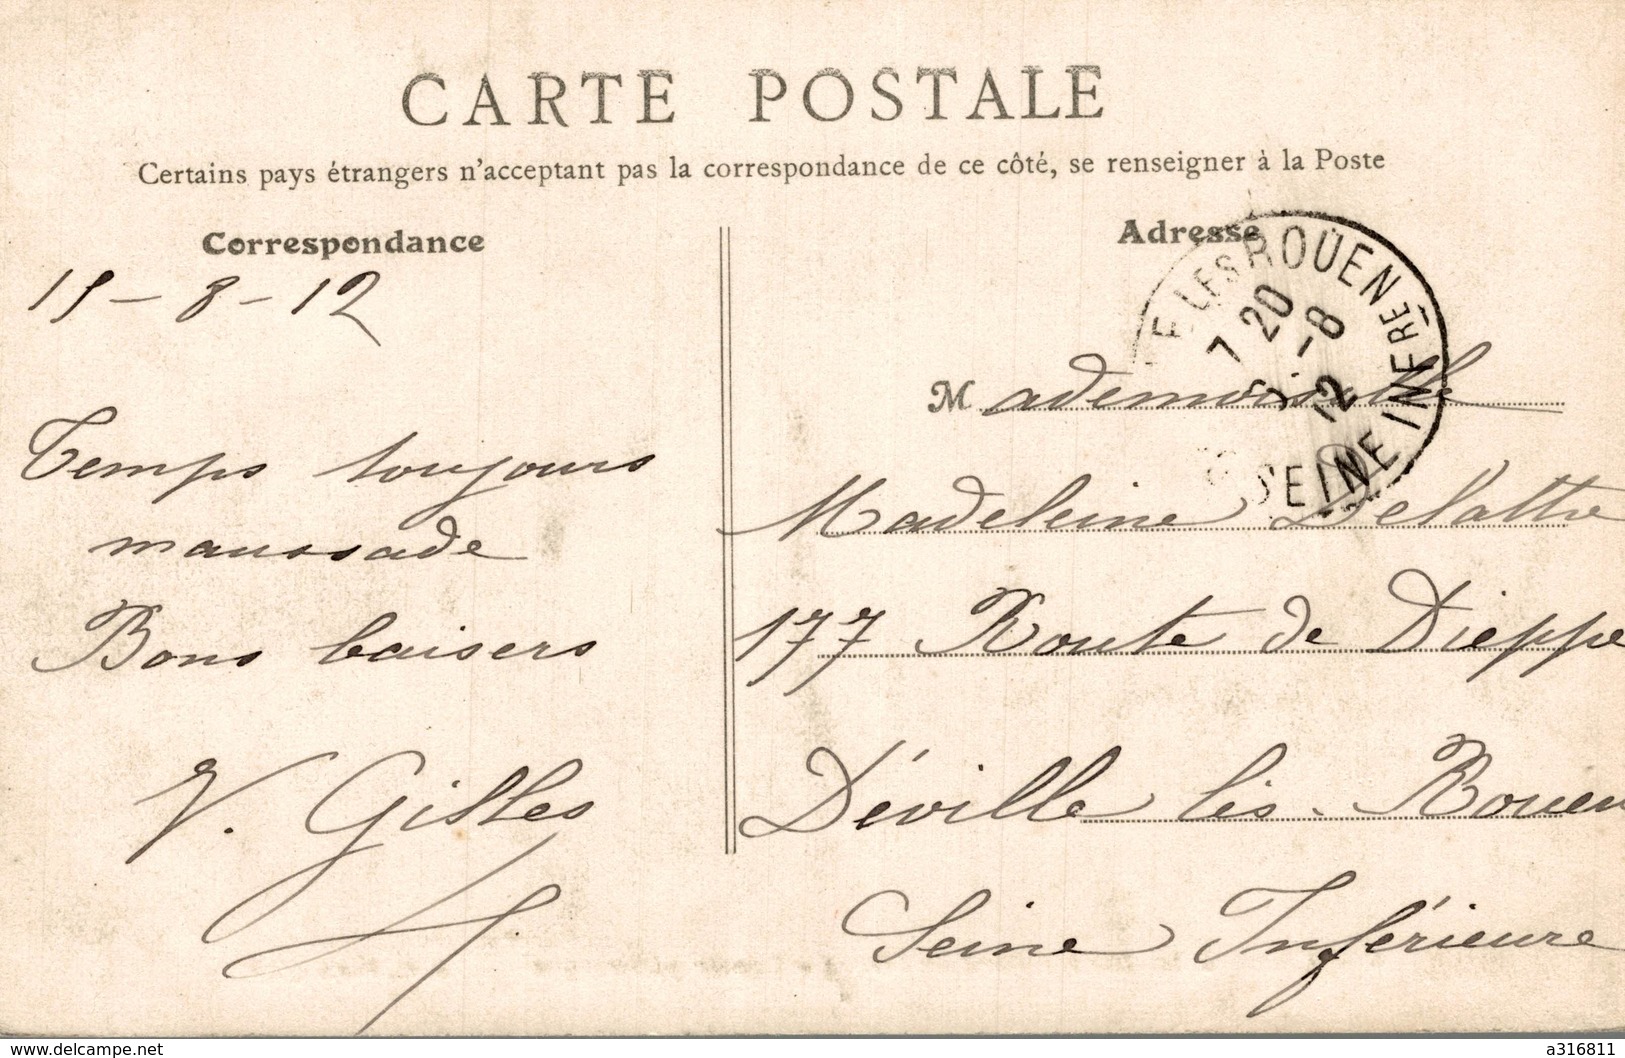 CARTE POSTALE
Certains pays étrangers n'acceptant pas la correspondance de ce côté, se renseigner à la Poste
Correspondance
15 - 8 - 12
Temps toujours
maussade
Bons baisers
V. Gilles
Adresse
LES ROUEN
7 20
-8
12
SEINE INFRE
Mademoiselle
Madeleine Delattre
177 Route de Dieppe
Déville lès-Rouen
Seine Inférieure
www.delcampe.net
a316811